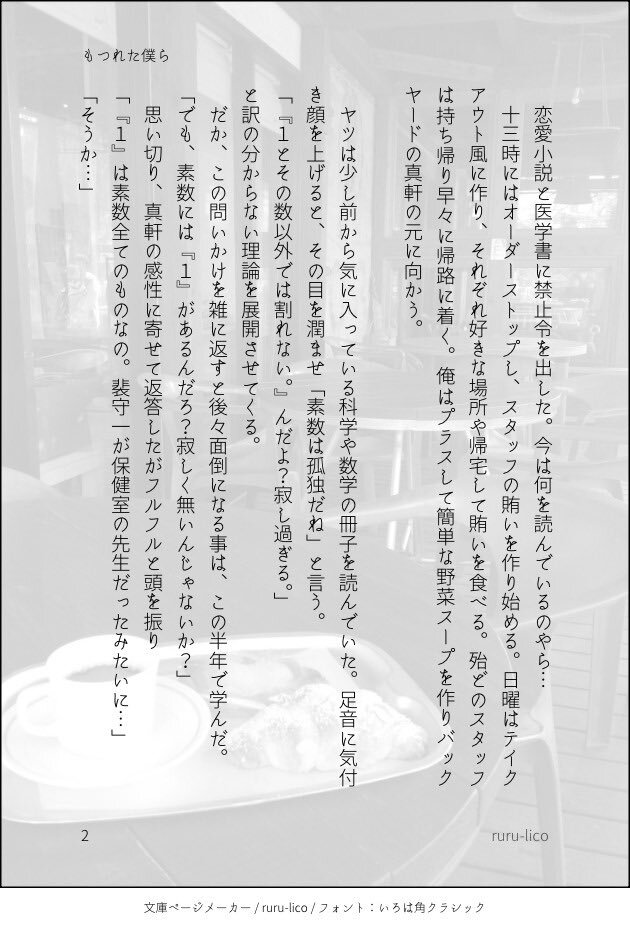 もつれた僕ら
恋愛小説と医学書に禁止令を出した。今は何を読んでいるのやら…
十三時にはオーダーストップし、スタッフの賄いを作り始める。日曜はテイク
アウト風に作り、それぞれ好きな場所や帰宅して賄いを食べる。殆どのスタッフ
は持ち帰り早々に帰路に着く。俺はプラスして簡単な野菜スープを作りバック
ヤードの真軒の元に向かう。
ヤツは少し前から気に入っている科学や数学の冊子を読んでいた。足音に気付
き顔を上げると、その目を潤ませ「素数は孤独だね」と言う。
「『1とその数以外では割れない。』んだよ?寂し過ぎる。」
と訳の分からない理論を展開させてくる。
だか、この問いかけを雑に返すと後々面倒になる事は、この半年で学んだ。
「でも、素数には『1』があるんだろ?寂しく無いんじゃないか?」
思い切り、真軒の感性に寄せて返答したがフルフルと頭を振り
「『1』は素数全てのものなの。裴守一が保健室の先生だったみたいに…」
「そうか…」
2
ruru-lico
文庫ページメーカー / ruru-lico / フォント：いろは角クラシック